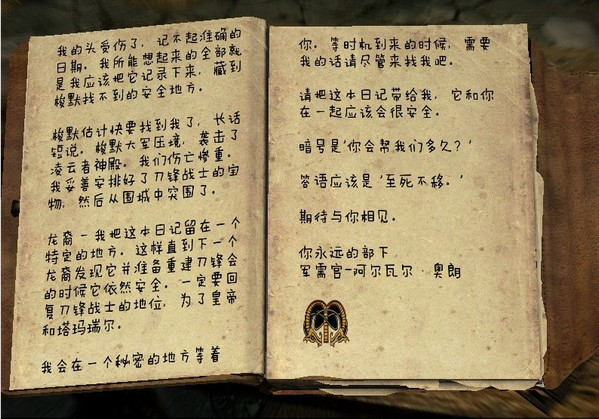 我的头受伤了，记不起准确的
日期。我所能想起来的全部就
是我应该把它记录下来，藏到
梭默找不到的安全地方。
梭默估计快要找到我了，长话
短说。梭默大军压境，袭击了
凌云者神殿。我们伤亡惨重。
我妥善安排好了刀锋战士的宝
物，然后从围城中突围了。
龙裔－我把这本日记留在一个
特定的地方。这样直到下一个
龙裔发现它并准备重建刀锋会
的时候它依然安全。一定要回
复刀锋战士的地位，为了皇帝
和塔玛瑞尔。
我会在一个秘密的地方等着
你。等时机到来的时候，需要
我的话请尽管来找我吧。
请把这本日记带给我，它和你
在一起应该会很安全。
暗号是'你会帮我们多久？'
答语应该是'至死不移。'
期待与你相见。
你永远的部下
军需官－阿尔瓦尔·奥朗